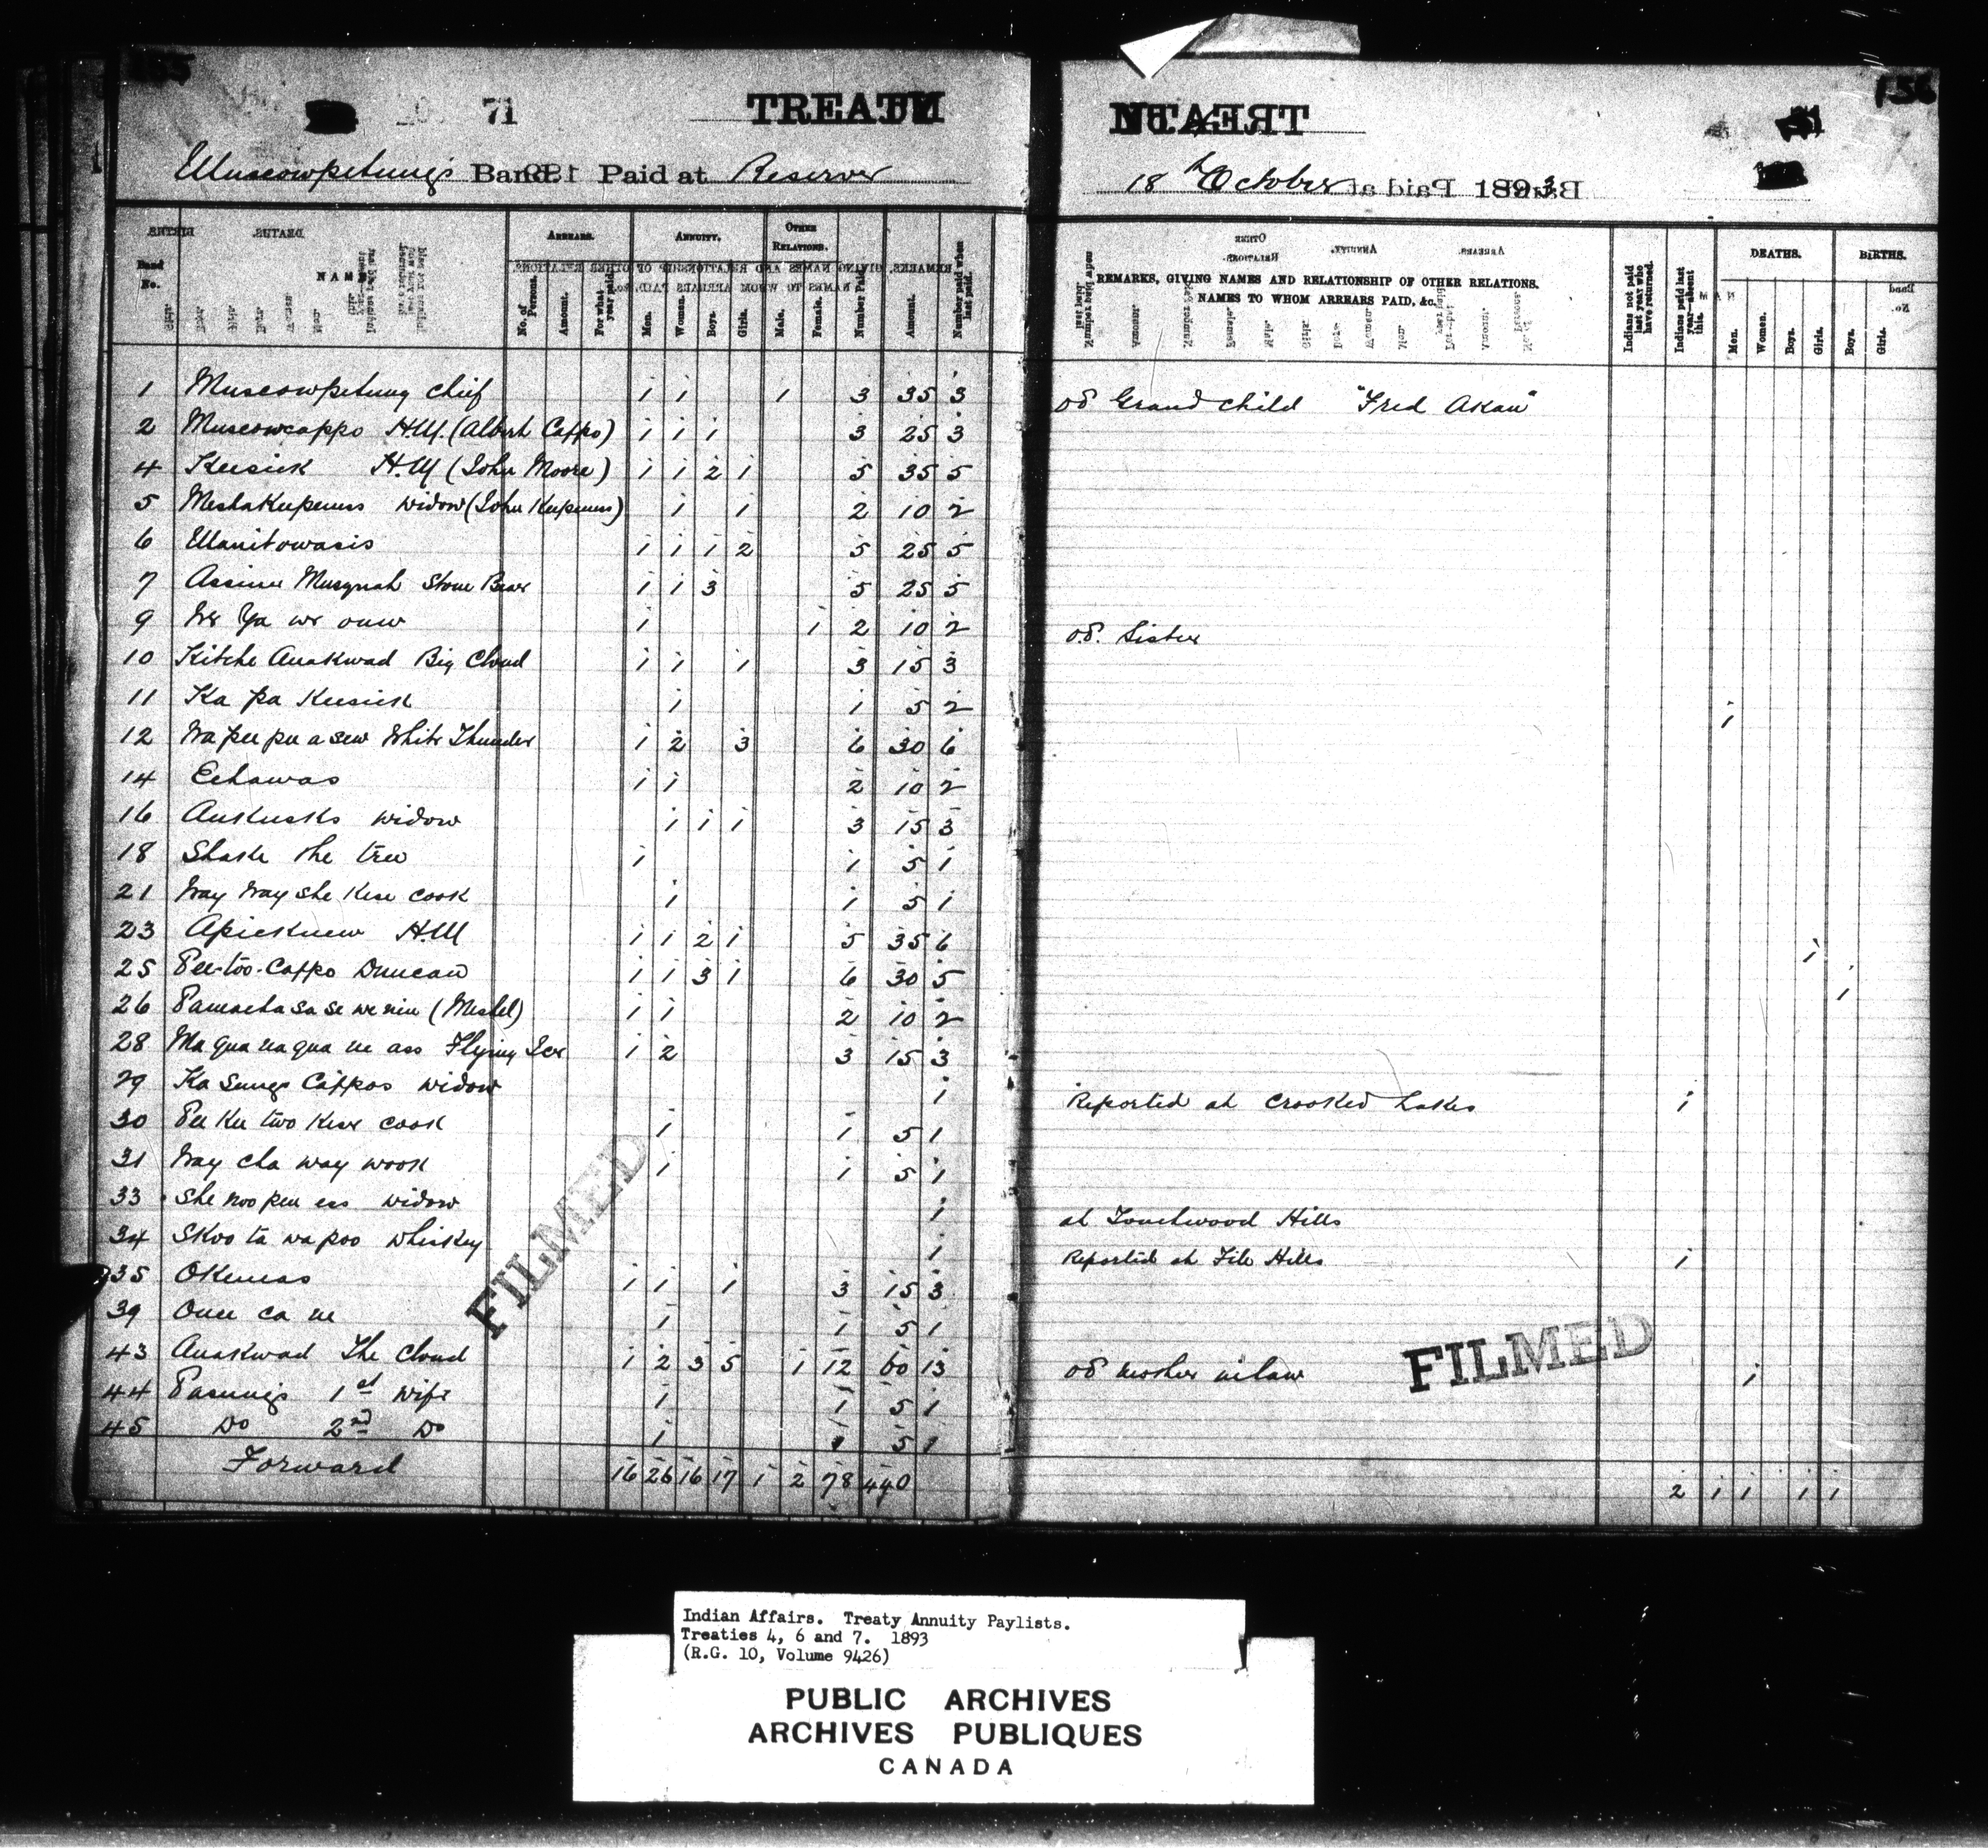 155
71
TREATY
Muscowpetung's Band. Paid at Reserve
Band No.
NAME.
ARREARS.
No. of Persons.
Amount.
For what year paid.
ANNUITY.
Men.
Women.
Boys.
Girls.
OTHER RELATIONS.
Male.
Female.
Number Paid.
Amount.
Number paid when last paid.
1 Muscowpetung Chief 1 1 1 3 35 3
2 Muscowcappo H.M. (Albert Cappo) 1 1 1 3 25 3
4 Keesick H.M (John Moore) 1 1 2 1 5 35 5
5 Meshakeepeness widow (John Keepeness) 1 1 2 10 2
6 Manitowasis 1 1 1 2 5 25 5
7 Assinee Musquah Stone Bear 1 1 3 5 25 5
9 We Ya we onew 1 1 2 10 2
10 Kitche Anakwad Big Cloud 1 1 1 3 15 3
11 Ka pa Keesick 1 1 5 2
12 Wa pee pee a sew White Thunder 1 2 3 6 30 6
14 Eehawas 1 1 2 10 2
16 Auskusks widow 1 1 1 3 15 3
18 Shake the tree 1 1 5 1
21 Way Way she Kese cook 1 1 5 1
23 Apiecknew H.M 1 1 2 1 5 35 6
25 Pee-too-Cappo Duncan 1 1 3 1 6 30 5
26 Pamachasasewenin (Meshel) 1 1 2 10 2
28 Ma qua na qua ne ass Flying Ice 1 2 3 15 3
29 Ka sungs Cappos widow 1
30 Pee Kee two Kese cook 1 1 5 1
31 Way cha way wook 1 1 5 1
33 She noo pen ess widow 1
34 Skoo ta wa poo whiskey 1
35 Okemas 1 1 1 3 15 3
39 Onee ca ne 1 1 5 1
43 Anakwad The Cloud 1 2 3 5 1 12 60 13
44 Pasung's 1st wife 1 1 5 1
45 Do 2nd Do 1 1 5 1
Forward 16 26 16 17 1 2 78 440
FILMED
156
18th October 1893
REMARKS, GIVING NAMES AND RELATIONSHIP OF OTHER RELATIONS.
NAMES TO WHOM ARREARS PAID, &c.
Indians not paid last year who have returned.
Indians paid last year—absent this.
DEATHS.
Men.
Women.
Boys.
Girls.
BIRTHS.
Boys.
Girls.
od Grand child "Fred Akan"
o.d. Sister
1
1
1
Reported at Crooked Lakes 1
at Touchwood Hills
Reported at File Hills 1
od mother in law 1
FILMED
2 1 1 1 1
Indian Affairs. Treaty Annuity Paylists.
Treaties 4, 6 and 7. 1893
(R.G. 10, Volume 9426)
PUBLIC ARCHIVES
ARCHIVES PUBLIQUES
CANADA